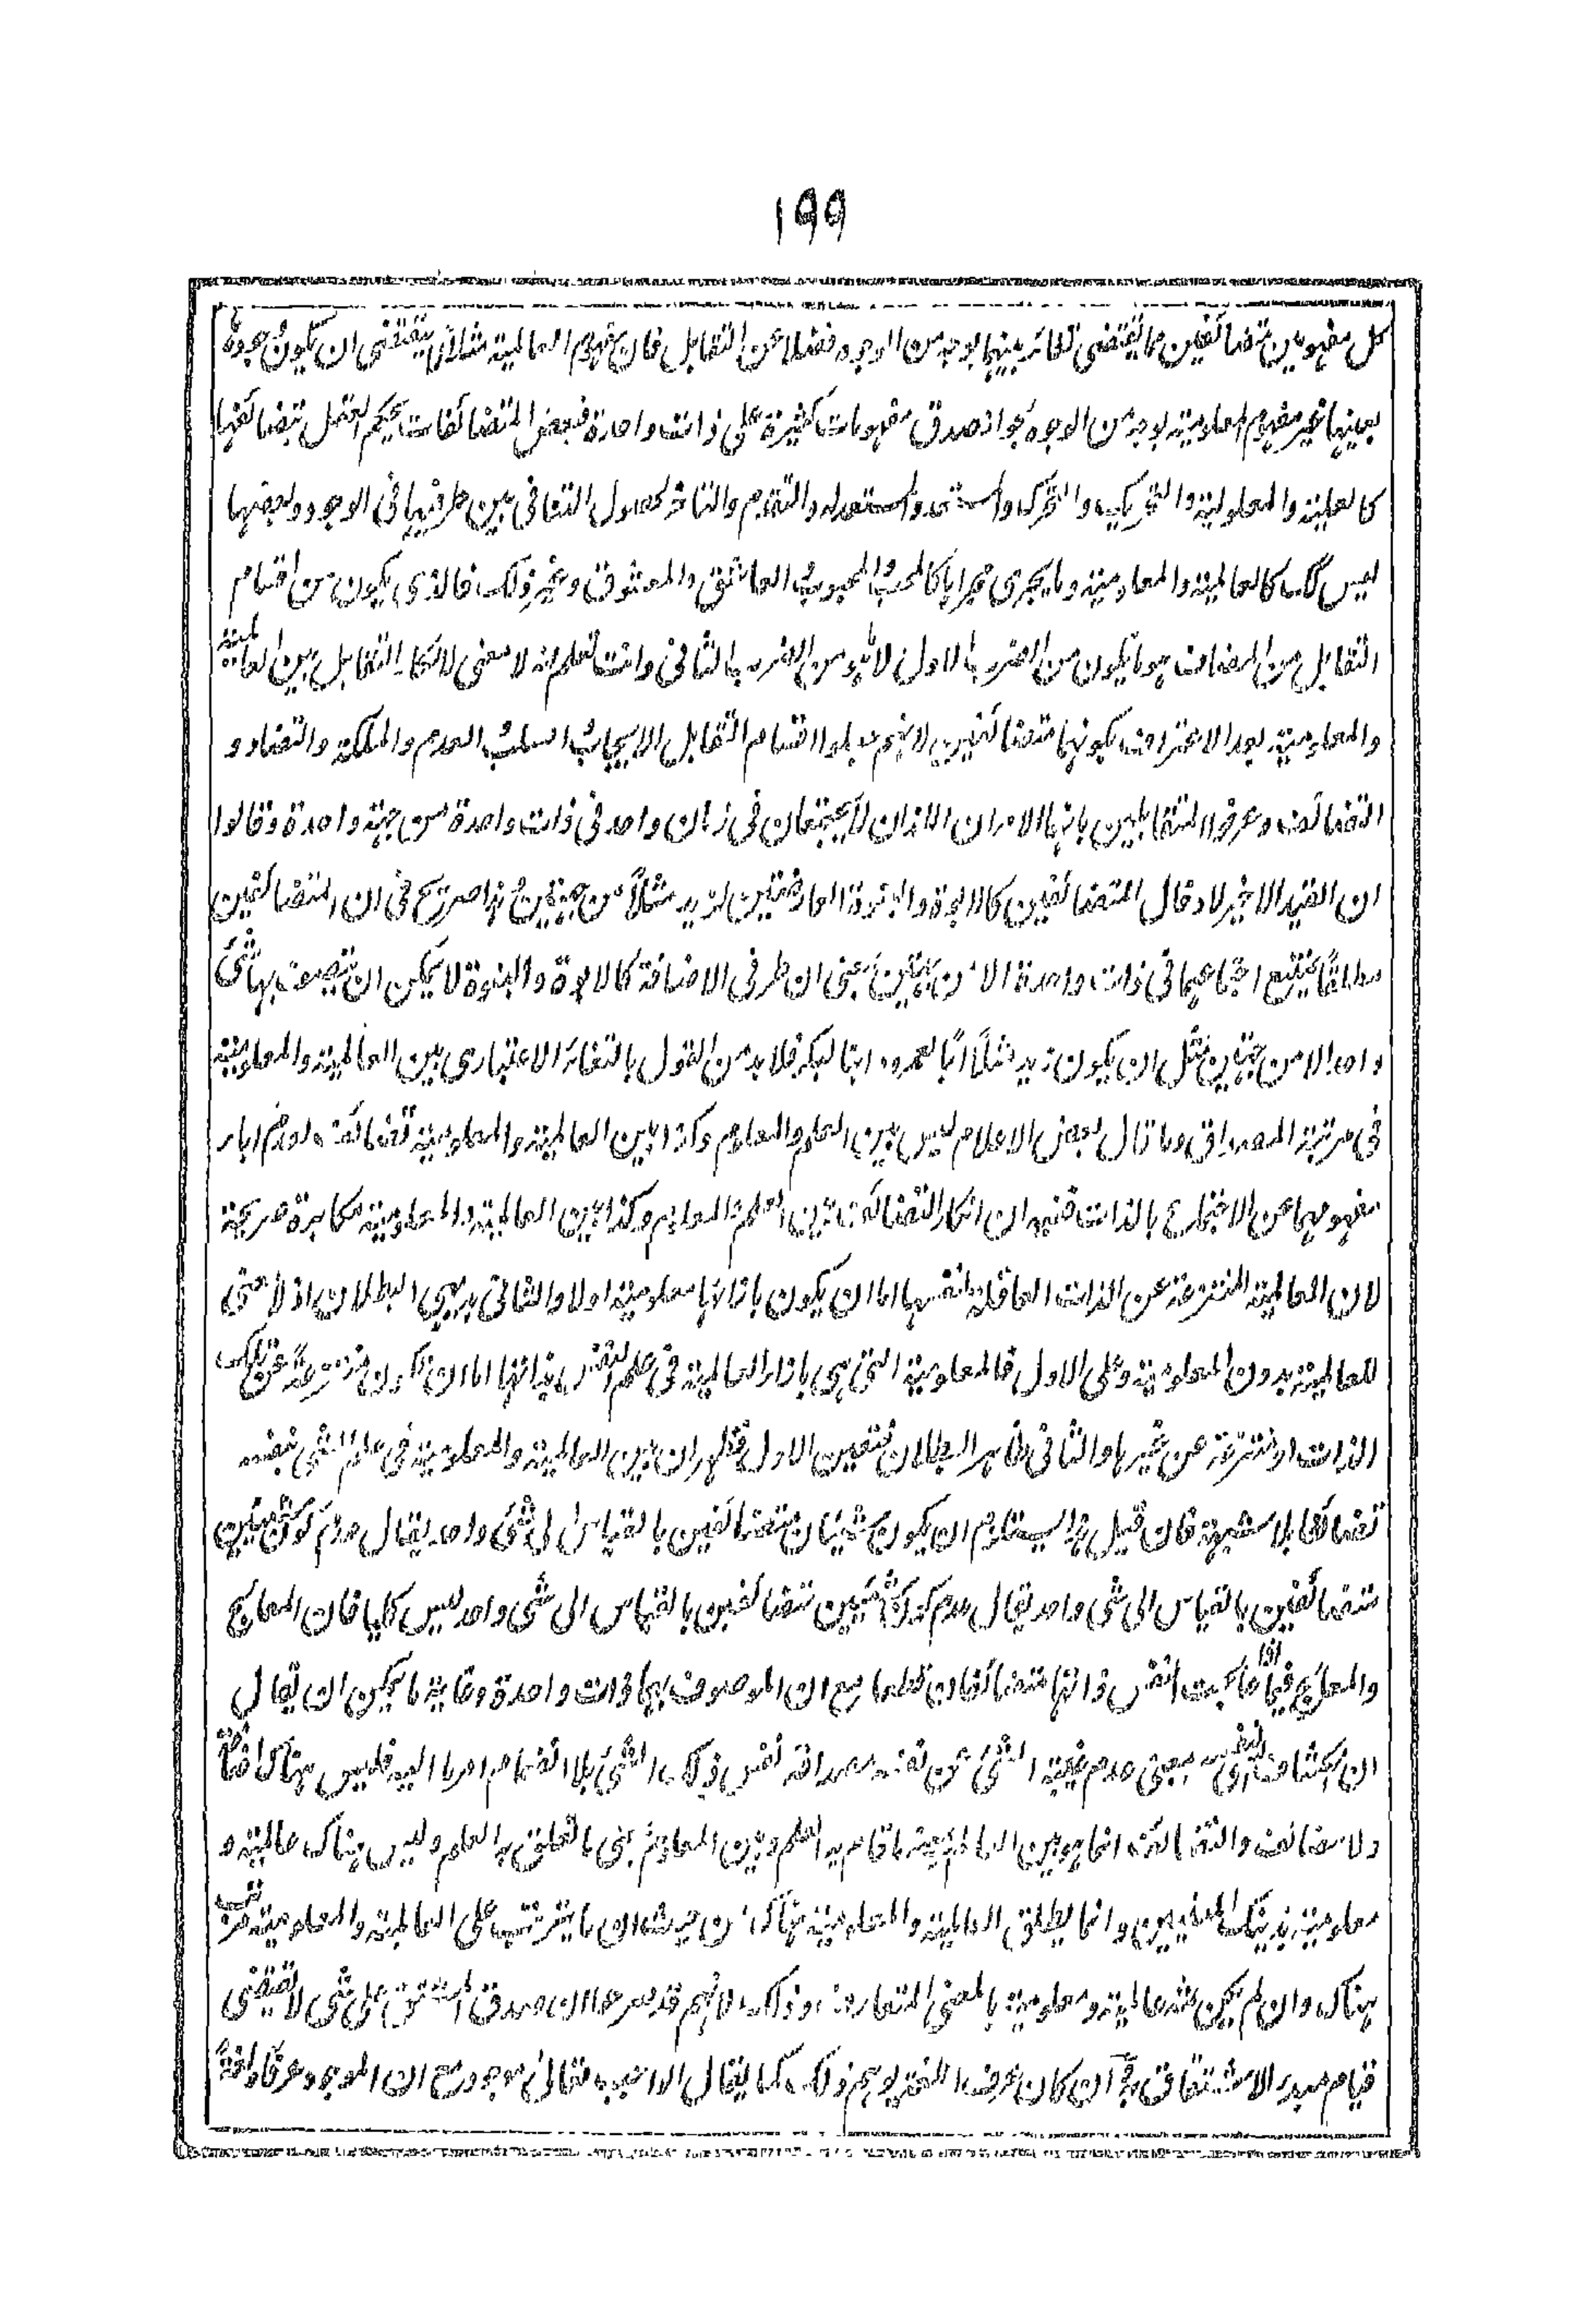 ١٩٩
كل مفهومين متضائفين مما يقتضى تغائر بينهما بوجه من الوجوه فضلا عن التقابل فان مفهوم العالمية مثلا لا يقتضى ان يكون وجوده
بعينها غير مفهوم المعلومية بوجه من الوجوه لجواز صدق مفهومات كثيرة على ذات واحدة فبعض المتضائفات يحكم العقل بتضائفها
كالعلية والمعلولية والتحريك والتحرك والتقدم والتاخر لحصول التنافى بين طرفيها فى الوجود وبعضها
ليس كك كالعالمية والمعلومية وما يجرى مجراها كالمحب والمحبوب العاشق والمعشوق وغير ذلك فالذى يكون من اقسام
التقابل من المضاف هو ما يكون من الضرب الاول لا ما هو من الضرب الثانى وانت تعلم انه لا معنى لانكار التقابل بين العالمية
والمعلومية بعد الاعتراف بكونهما متضائفين لانهم عدوا اقسام التقابل الايجاب السلب العدم والملكة والتضاد و
التضائف وعرفوا المتقابلين بانهما الامران اللذان لا يجتمعان فى زمان واحد فى ذات واحدة من جهة واحدة وقالوا
ان القيد الاخير لادخال المتضائفين كالابوة والبنوة العارضتين لزيد مثلا من جهتين هذا صريح فى ان المتضائفين
مطلقا يمتنع اجتماعهما فى ذات واحدة الا من جهتين بمعنى ان طرفى الاضافة كالابوة والبنوة لا يمكن ان يتصف بهما شئ
واحد الا من جهتين مثل ان يكون زيد مثلا ابا لعمرو وابنا لبكر فلا بد من القول بالتغائر الاعتبارى بين العالمية والمعلومية
فى مرتبة المصداق وما قال بعض الاعلام ليس بين العلم والمعلوم وكذا بين العالمية والمعلومية تضائف لعدم اباء
مفهومهما عن الاجتماع بالذات ففيه ان انكار التضائف بين العلم والمعلوم وكذا بين العالمية والمعلومية مكابرة صريحة
لان العالمية المنتزعة عن الذات العاقلة لنفسها اما ان يكون بازائها معلومية اولا والثانى بديهى البطلان اذ لا معنى
للعالمية بدون المعلومية وعلى الاول فالمعلومية التى هى بازاء العالمية فى علم النفس بذاتها اما ان تكون منتزعة عن تلك
الذات او منتزعة عن غيرها والثانى ظاهر البطلان فتعين الاول فظهر ان بين العالمية والمعلومية فى علم الشئ بنفسه
تضائفا بلا شبهة فان قيل هذا يستلزم ان يكون شيئان متضائفين بالقياس الى شئ واحد يقال عدم كون شيئين
متضائفين بالقياس الى شئ واحد يقال عدم كون شيئين متضائفين بالقياس الى شئ واحد ليس كليا فان المعالج
والمعالج فيما اذا عالجت النفس ذاتها متضائفان قطعا مع ان الموصوف بهما ذات واحدة وغاية ما يمكن ان يقال
ان انكشاف الشئ لنفسه بمعنى عدم غيبة الشئ عن نفسه مصداقه نفس ذلك الشئ بلا انضمام امر ما اليه فليس هناك اضافة
ولا مضائف والتضائف انما هو بين العالم بمعنى ما قام به العلم وبين المعلوم بمعنى ما تعلق به العلم وليس هناك عالمية و
معلومية بذينك المعنيين وانما يطلق العالمية والمعلومية هناك من حيث ان ما يترتب على العالمية والمعلومية مترتب
هناك وان لم يكن ثمه عالمية ومعلومية بالمعنى المتعارف وذلك لانهم قد صرحوا ان صدق المشتق على شئ لا يقتضى
قيام مبدء الاشتقاق به وان كان عرف اللغة يوهم ذلك كما يقال الواجب تعالى موجود مع ان الموجود عرفا ولغة